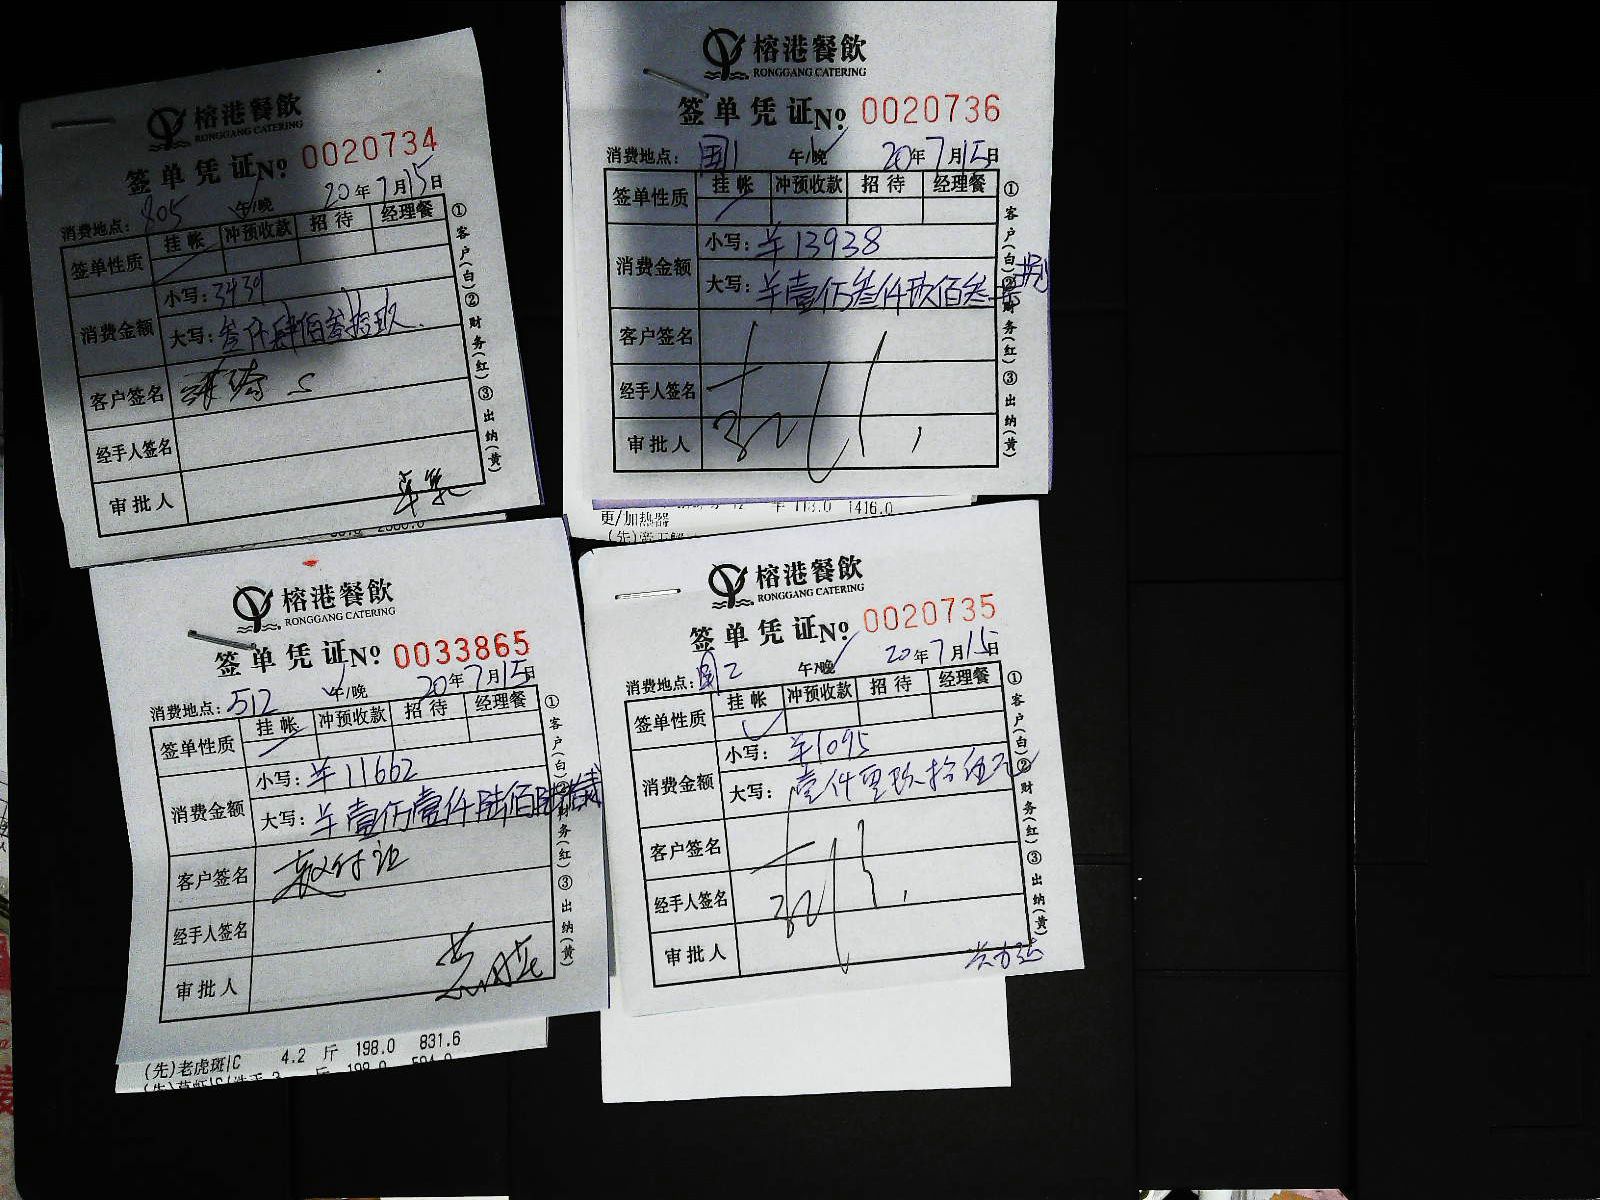 榕港餐飲
RONGGANG CATERING
签单凭证 No 0020734
消费地点: 805 午/晚 20年7月15日
签单性质 挂帐 冲预收款 招待 经理餐
消费金额 小写: 3439
大写: 叁仟肆佰叁拾玖
客户签名
经手人签名
审批人
①客户(白)②财务(红)③出纳(黄)
榕港餐飲
RONGGANG CATERING
签单凭证 No 0020736
消费地点: 国1 午/晚 20年7月15日
签单性质 挂帐 冲预收款 招待 经理餐
消费金额 小写: 羊13938
大写: 羊壹万叁仟玖佰叁
客户签名
经手人签名
审批人
①客户(白)②财务(红)③出纳(黄)
113.0 1416.0
更/加热器
榕港餐飲
RONGGANG CATERING
签单凭证 No 0033865
消费地点: 512 午/晚 20年7月15日
签单性质 挂帐 冲预收款 招待 经理餐
消费金额 小写: 羊11662
大写: 羊壹万壹仟陆佰陆拾贰
客户签名
经手人签名
审批人
①客户(白)②财务(红)③出纳(黄)
(先)老虎斑/C 4.2 斤 198.0 831.6
榕港餐飲
RONGGANG CATERING
签单凭证 No 0020735
消费地点: 国2 午/晚 20年7月15日
签单性质 挂帐 冲预收款 招待 经理餐
消费金额 小写: 羊1095
大写: 壹仟零玖拾伍元
客户签名
经手人签名
审批人
①客户(白)②财务(红)③出纳(黄)